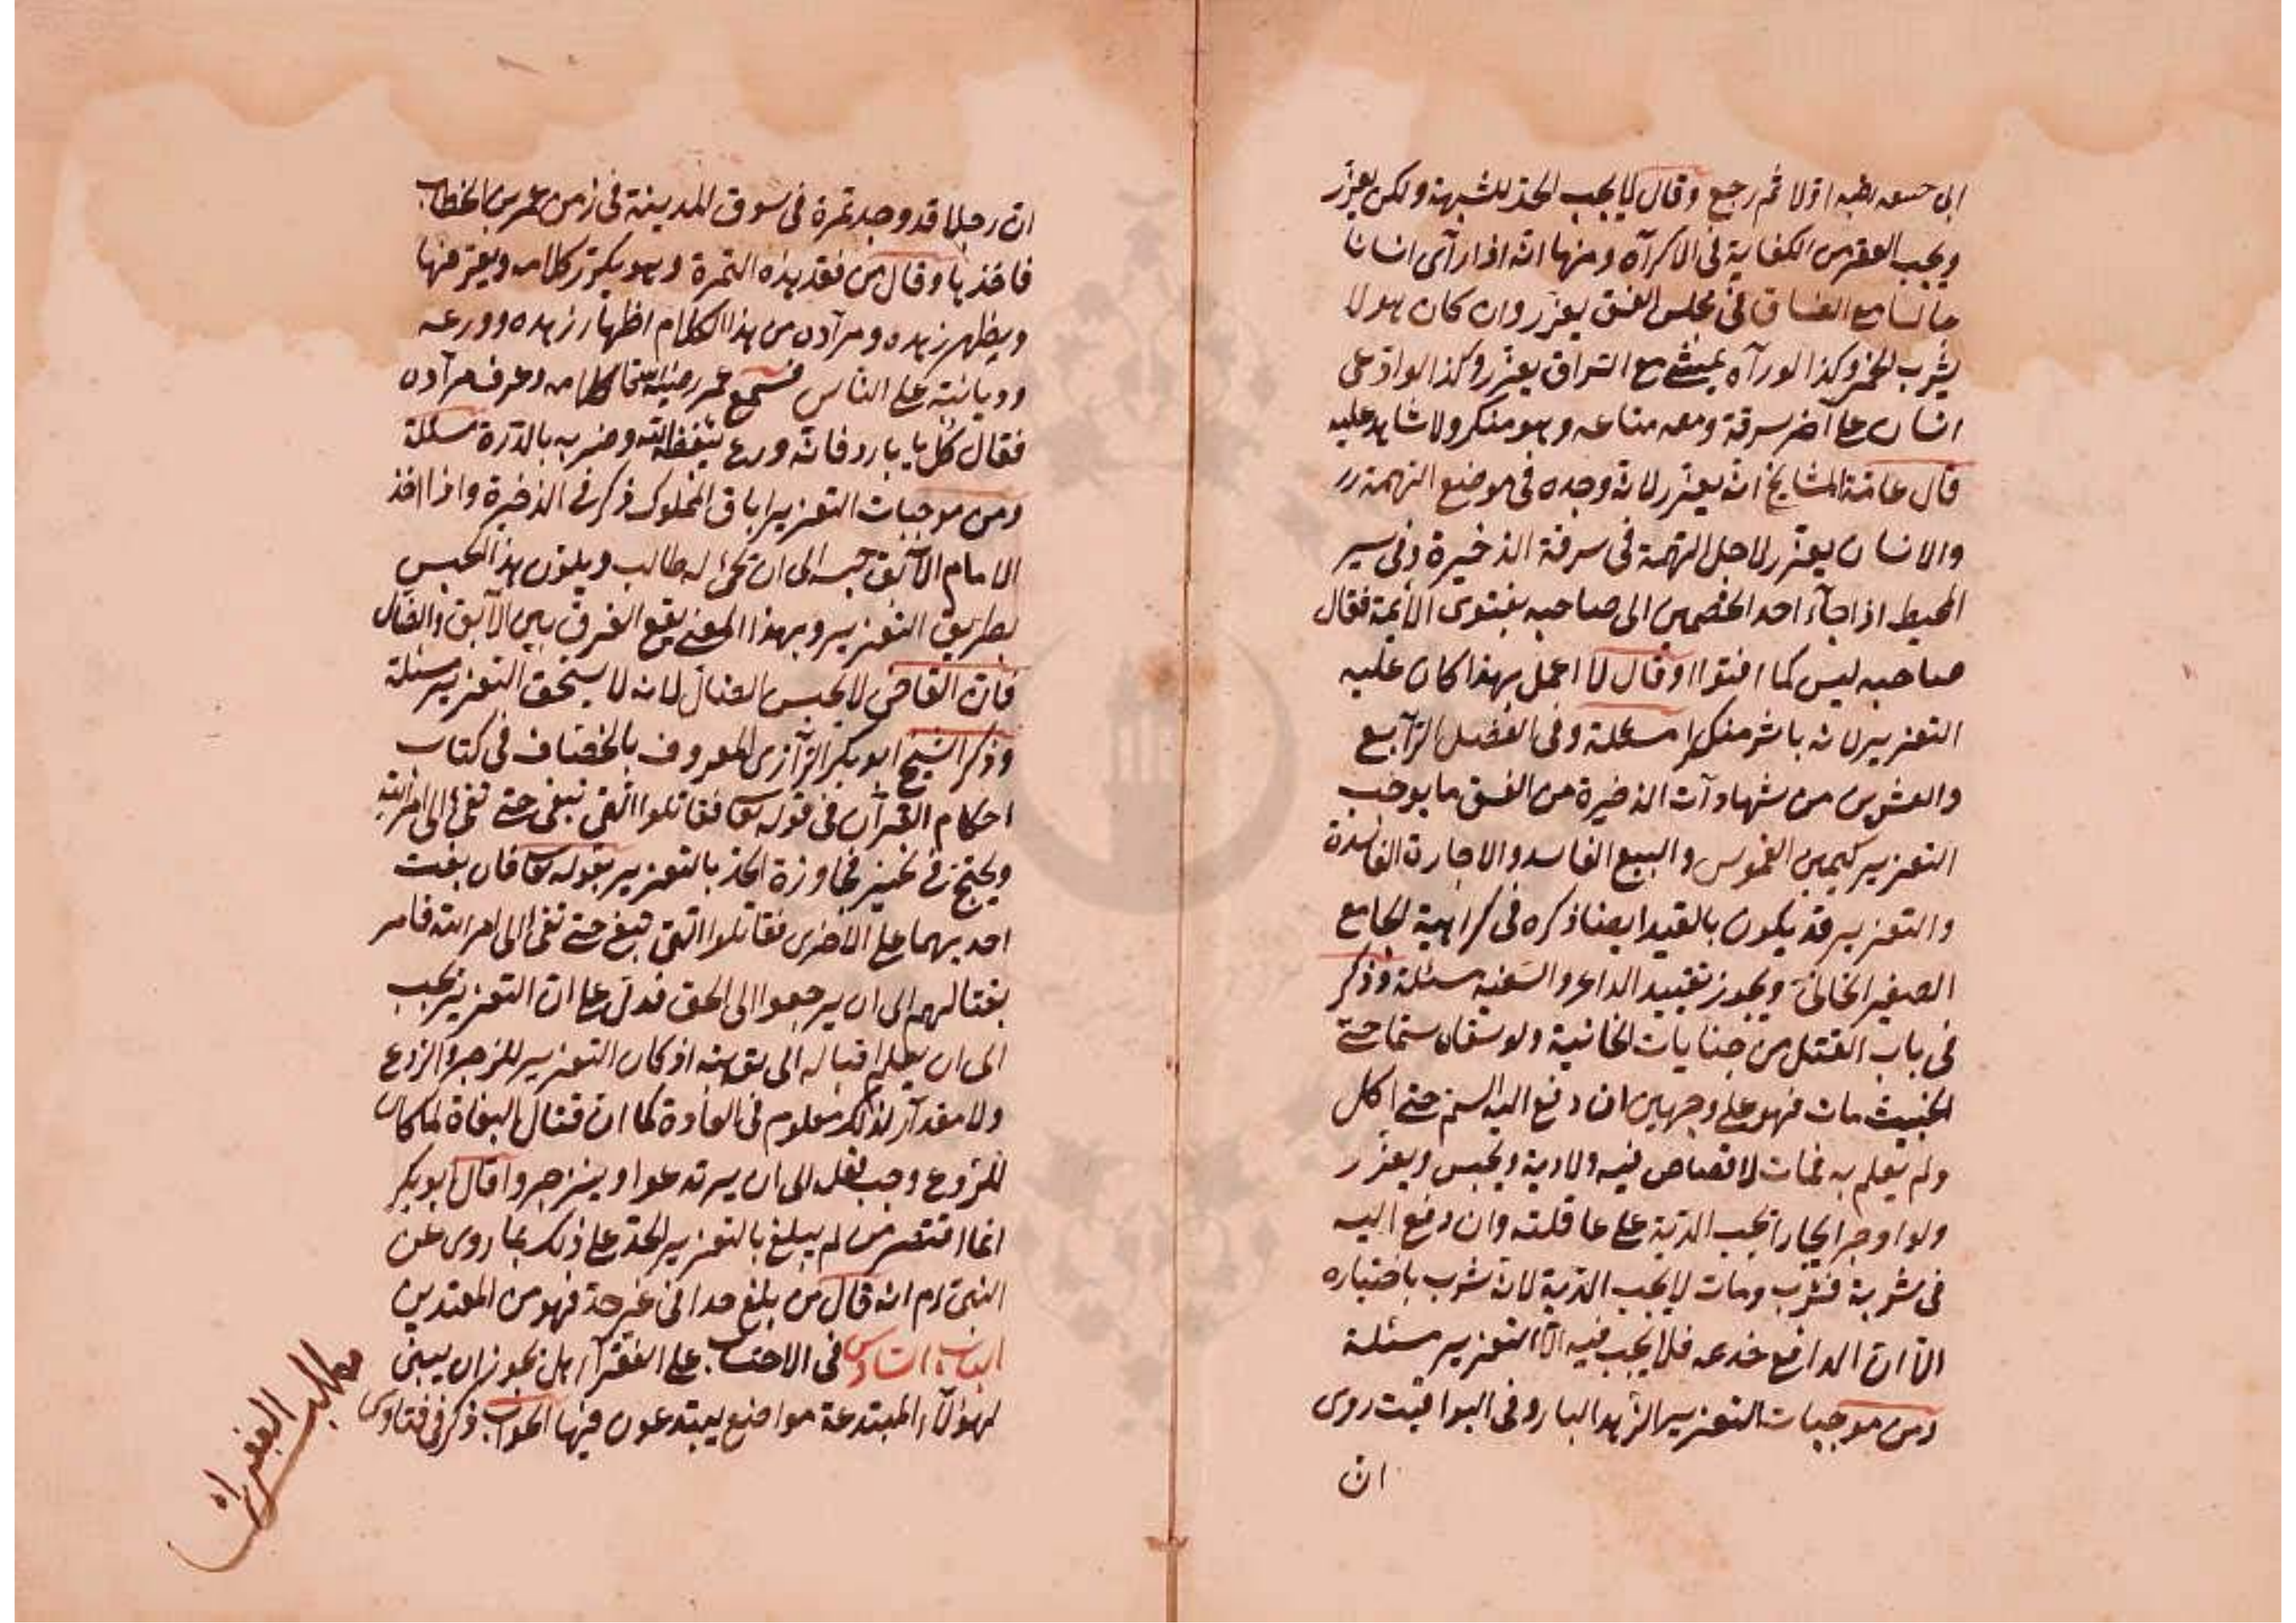 ابى حنيفة اولا ثم رجع وقال لا يجب الحد للشبهة ولكن يعزر
ويجب العقر من الكفاية فى الاكرآه ومنها انه اذا رآى انسانا
جالسا مع الفساق فى مجلس الفسق يعزر وان كان هو لا
يشرب الخمر وكذا لو رآه يمشى مع السراق يعزر وكذا لو ادعى
انسان على آخر سرقة ومعه متاعه وهو منكر ولا شاهد عليه
قال عامة المشايخ انه يعزر لانه وجده فى موضع التهمة
والانسان يعزر لاجل التهمة فى سرقة الذخيرة وفى سير
المحيط اذا جآء احد الخصمين الى صاحبه بفتوى الائمة فقال
صاحبه ليس كما افتوا او قال لا اعمل بهذا كان عليه
التعزير لانه باشر منكرا مسئلة وفى الفصل الرآبع
والعشرين من شهادآت الذخيرة من الفسق ما يوجب
التعزير كيمين الغموس والبيع الفاسد والاجارة الفاسدة
والتعزير قد يكون بالقيد ايضا ذكره فى كراهية الجامع
الصغير الخانى ويجوز تقييد الداعر والسفيه مسئلة وذكر
فى باب القتل من جنايات الخانية ولو سقاه سما حتى
مات فهو على وجهين ان دفع اليه السم حتى اكل
ولم يعلم به فمات لا قصاص فيه ولا دية ويحبس ويعزر
ولو اوجر ايجارا تجب الدية على عاقلته وان دفع اليه
فى شربة فشرب ومات لا يجب الدية لانه شرب باختياره
الا ان الدافع خدعه فلا يجب فيه الا التعزير مسئلة
ومن موجبات التعزير الزهد البارد وفى اليواقيت روى
ان
ان رجلا قد وجد تمرة فى سوق المدينة فى زمن عمر بن الخطاب
فاخذها وقال من فقد هذه التمرة وهو يكرر كلامه ويعرفها
ويظهر زهده ومرآده من هذا الكلام اظهار زهده وورعه
وديانته على الناس فسمع عمر رضى الله تعالى كلامه وعرف مرآده
فقال كل يا بارد فانه ورع يبغضه الله وضربه بالدرة مسئلة
ومن موجبات التعزير اباق المملوك ذكر فى الذخيرة واذا اخذ
الامام الآبق حبسه الى ان يجئ له طالب ويكون هذا الحبس
بطريق التعزير وبهذا المعنى يقع الفرق بين الآبق والضال
فان القاضى لا يحبس الضال لانه لا يستحق التعزير مسئلة
وذكر الشيخ ابو بكر الرآزى المعروف بالخصاف فى كتاب
احكام القرآن فى قوله تعالى فقاتلوا التى تبغى حتى تفئ الى امر الله
ويحتج فى تجاوزة الحد بالتعزير بقوله تعالى فان بغت
احديهما على الاخرى فقاتلوا التى تبغى حتى تفئ الى امر الله فامر
بقتالهم الى ان يرجعوا الى الحق فدل على ان التعزير يجب
الى ان يعلم اقباله الى توبته اذ كان التعزير للزجر والردع
ولا مقدآر لذلك معلوم فى العادة كما ان قتال البغاة لما كان
للردع وجب فعله الى ان يرتدعوا وينزجروا قال ابو بكر
انما اقتصر من لم يبلغ بالتعزير الحد على ذلك بما روى عن
النبى ءم انه قال من بلغ حدا فى غير حد فهو من المعتدين
الباب السادس فى الاحتساب على الفقرآء هل يجوز ان يبنى
لهؤلآء المبتدعة مواضع يبتدعون فيها الجواب ذكر فى فتاوى
مطالب الفقرآء